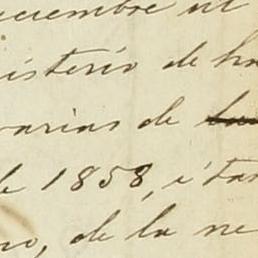 diciembre ul
isterio de ha
varias de
de 1858, é tam
no, de la ne